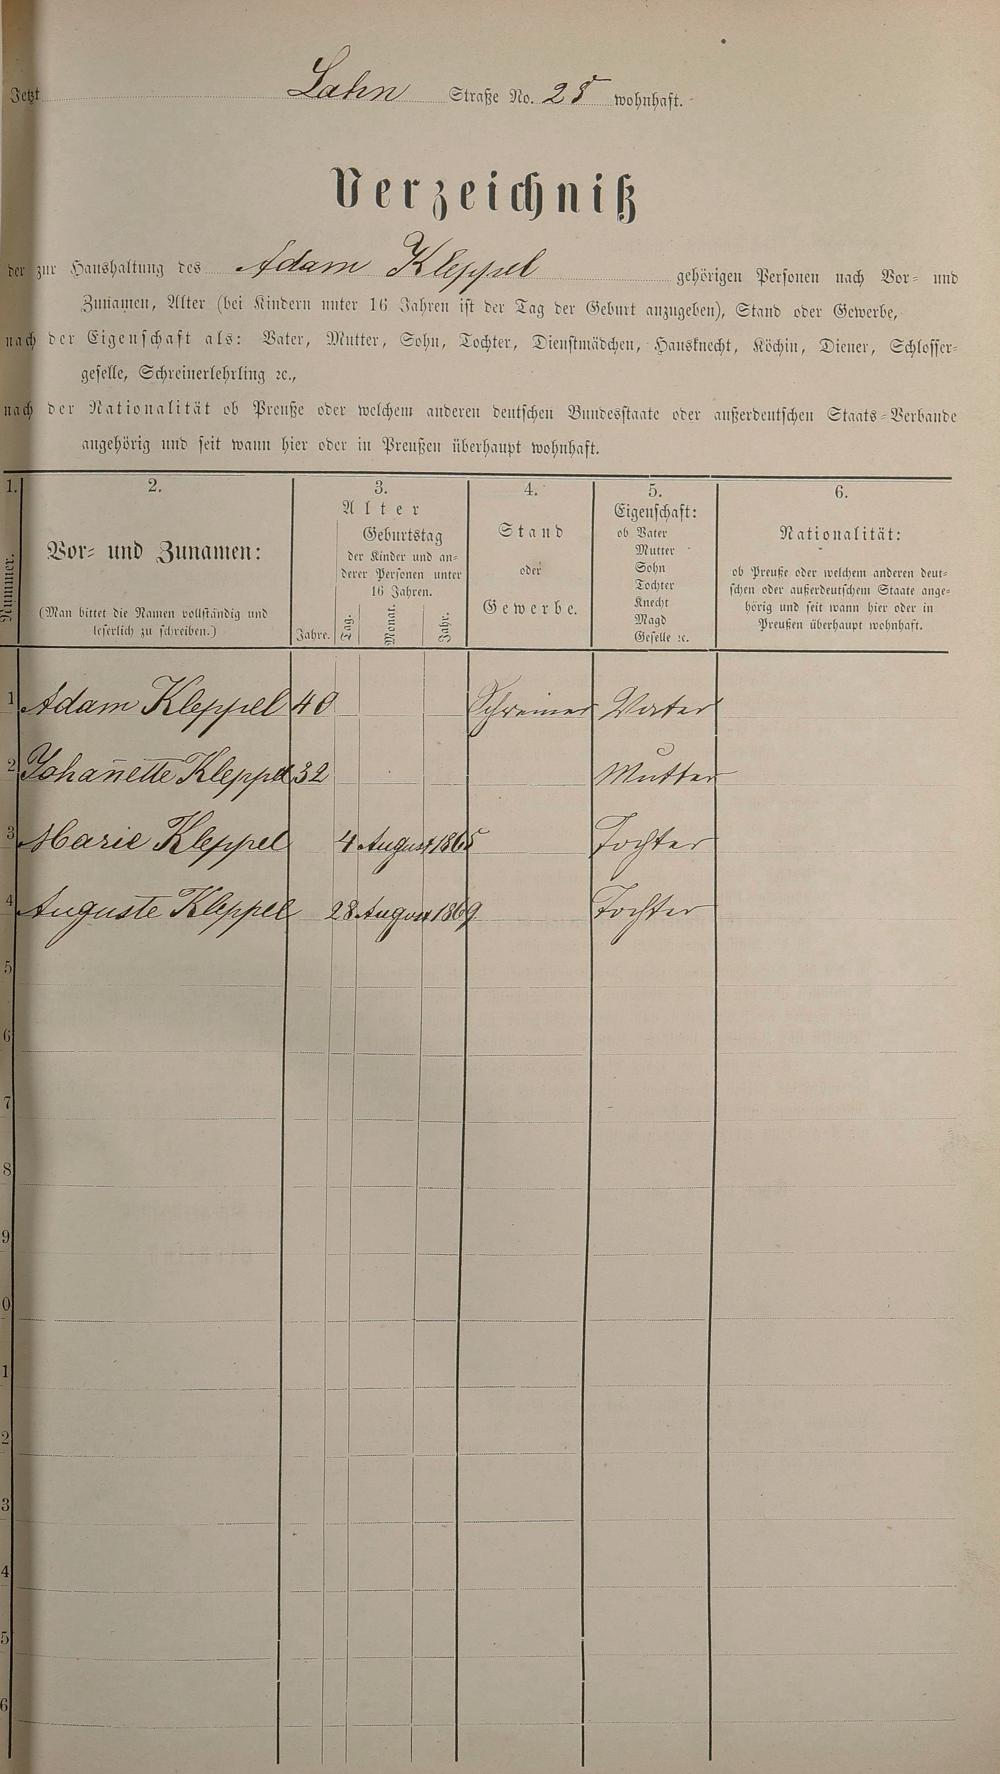 Jetzt Lahn Straße No. 25 wohnhaft.
Verzeichniß
der zur Haushaltung des Adam Kleppel gehörigen Personen nach Vor- und
Zunamen, Alter (bei Kindern unter 16 Jahren ist der Tag der Geburt anzugeben), Stand oder Gewerbe,
nach der Eigenschaft als: Vater, Mutter, Sohn, Tochter, Dienstmädchen, Hausknecht, Köchin, Diener, Schlosser-
geselle, Schreinerlehrling ꝛc.,
nach der Nationalität ob Preuße oder welchem anderen deutschen Bundesstaate oder außerdeutschen Staats-Verbande
angehörig und seit wann hier oder in Preußen überhaupt wohnhaft.
1.
Nummer.
2.
Vor- und Zunamen:
(Man bittet die Namen vollständig und
leserlich zu schreiben.)
3.
Alter
Jahre.
Geburtstag
der Kinder und an-
derer Personen unter
16 Jahren.
Tag.
Monat.
Jahr.
4.
Stand
oder
Gewerbe.
5.
Eigenschaft:
ob Vater
Mutter
Sohn
Tochter
Knecht
Magd
Geselle ꝛc.
6.
Nationalität:
ob Preuße oder welchem anderen deut-
schen oder außerdeutschem Staate ange-
hörig und seit wann hier oder in
Preußen überhaupt wohnhaft.
1 Adam Kleppel 40 Schreiner Vater
2 Johan̄ette Kleppel 32 Mutter
3 Marie Kleppel 4 August 1865 Tochter
4 Auguste Kleppel 28 August 1869 Tochter
5
6
7
8
9
0
1
2
3
4
5
6